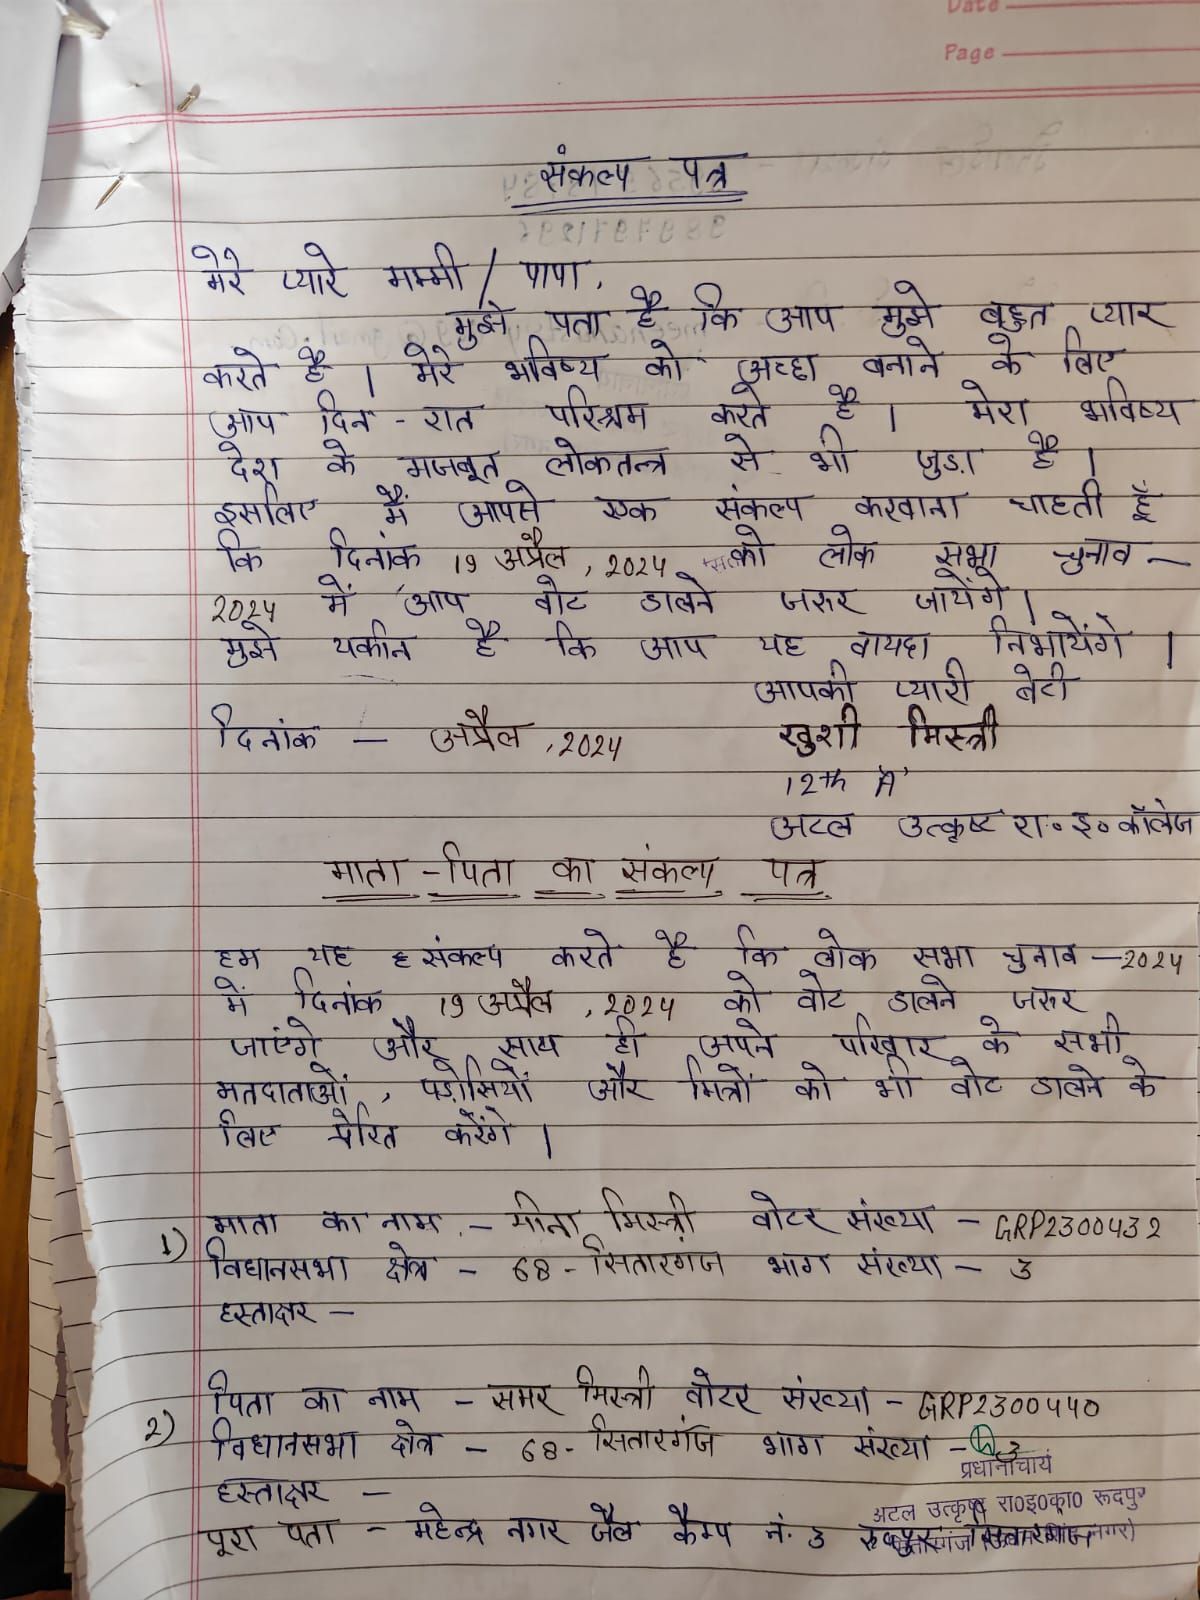 Date
Page
संकल्प पत्र
मेरे प्यारे मम्मी / पापा,
मुझे पता है कि आप मुझे बहुत प्यार
करते है । मेरे भविष्य को अच्छा बनाने के लिए
आप दिन - रात परिश्रम करते है । मेरा भविष्य
देश के मजबूत लोकतन्त्र से भी जुड़ा है ।
इसलिए मैं आपसे एक संकल्प करवाना चाहती हूँ
कि दिनांक 19 अप्रैल, 2024 को लोक सभा चुनाव -
2024 में आप वोट डालने जरुर जायेंगे ।
मुझे यकीन है कि आप यह वायदा निभायेंगे ।
आपकी प्यारी बेटी
दिनांक - अप्रैल, 2024 खुशी मिस्त्री
12th 'A'
अटल उत्कृष्ट रा॰ इ॰ कॉलेज
माता - पिता का संकल्प पत्र
हम यह संकल्प करते है कि लोक सभा चुनाव - 2024
में दिनांक 19 अप्रैल, 2024 को वोट डालने जरुर
जाएंगे और साथ ही अपने परिवार के सभी
मतदाताओं, पड़ोसियों और मित्रों को भी वोट डालने के
लिए प्रेरित करेंगे ।
1) माता का नाम - मीना मिस्त्री वोटर संख्या - GRP2300432
विधानसभा क्षेत्र - 68 - सितारगंज भाग संख्या - 3
हस्ताक्षर -
2) पिता का नाम - समर मिस्त्री वोटर संख्या - GRP2300440
विधानसभा क्षेत्र - 68 - सितारगंज भाग संख्या - 3
प्रधानाचार्य
हस्ताक्षर -
अटल उत्कृष्ट रा०इ०का० रूदपुर
पूरा पता - महेन्द्र नगर जैल कैम्प नं. 3